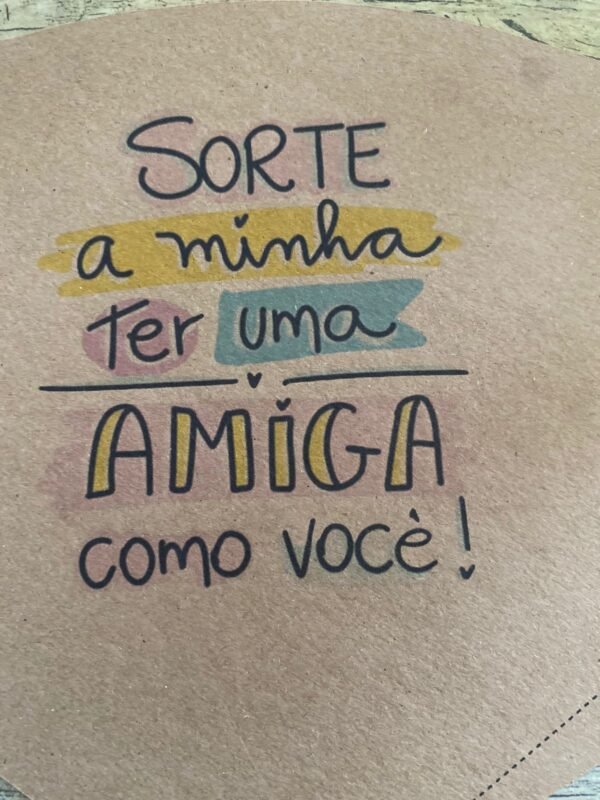 SORTE
a minha
Ter uma
AMIGA
como você!